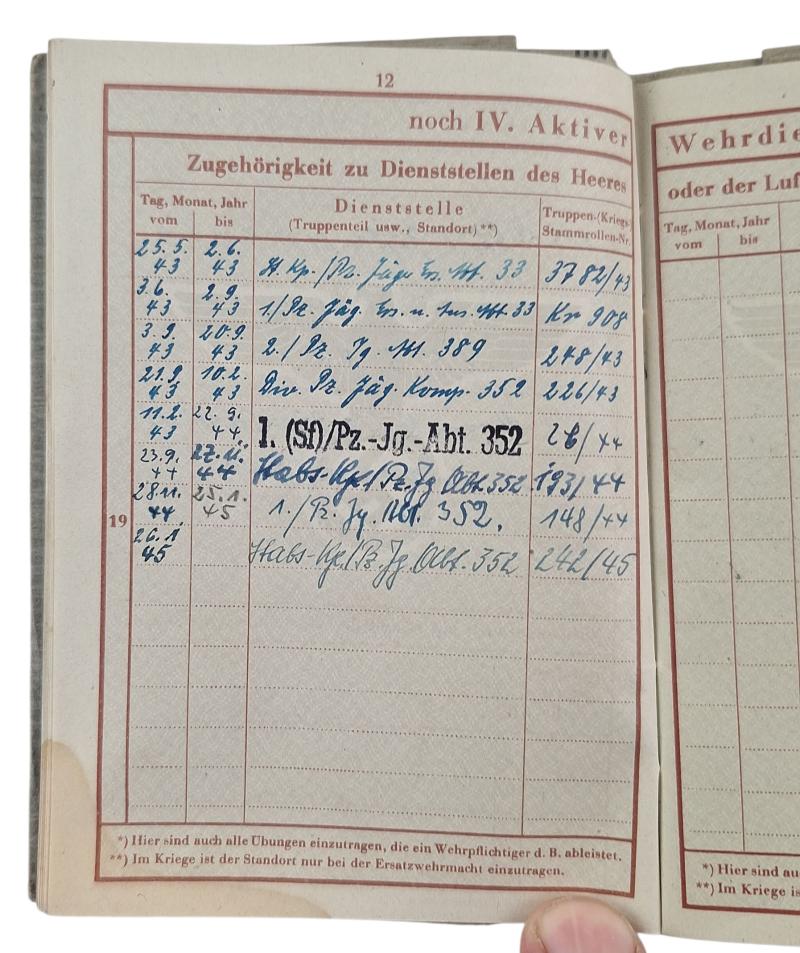 12
noch IV. Aktiver
Zugehörigkeit zu Dienststellen des Heeres
Tag, Monat, Jahr
vom bis
Dienststelle
(Truppenteil usw., Standort)**)
Truppen-(Kriegs-
Stammrollen-Nr.
25.5. 43 2.6. 43 Kp./Pz. Jäger Ers. Abt. 33 3782/43
3.6. 43 2.9. 43 1./Pz. Jäg. Ers. u. Aus. Abt. 33 Kr 908
3.9. 43 20.9. 43 2./Pz. Jg. Abt. 389 248/43
21.9. 43 10.2. Div. Pz. Jäg. Komp. 352 226/43
11.2. 43 22.9. 44 1. (Sf)/Pz.-Jg.-Abt. 352 26/44
23.9. 44 27.11. 44 Stabs-Kp./Pz. Jg. Abt. 352 193/44
28.11. 44 25.1. 45 1./Pz. Jg. Abt. 352. 148/44
26.1 45 Stabs-Kp./Pz. Jg. Abt. 352 242/45
19
*) Hier sind auch alle Übungen einzutragen, die ein Wehrpflichtiger d. B. ableistet.
**) Im Kriege ist der Standort nur bei der Ersatzwehrmacht einzutragen.
Wehrdie
oder der Luf
Tag, Monat, Jahr
vom bis
*) Hier sind au
**) Im Kriege is